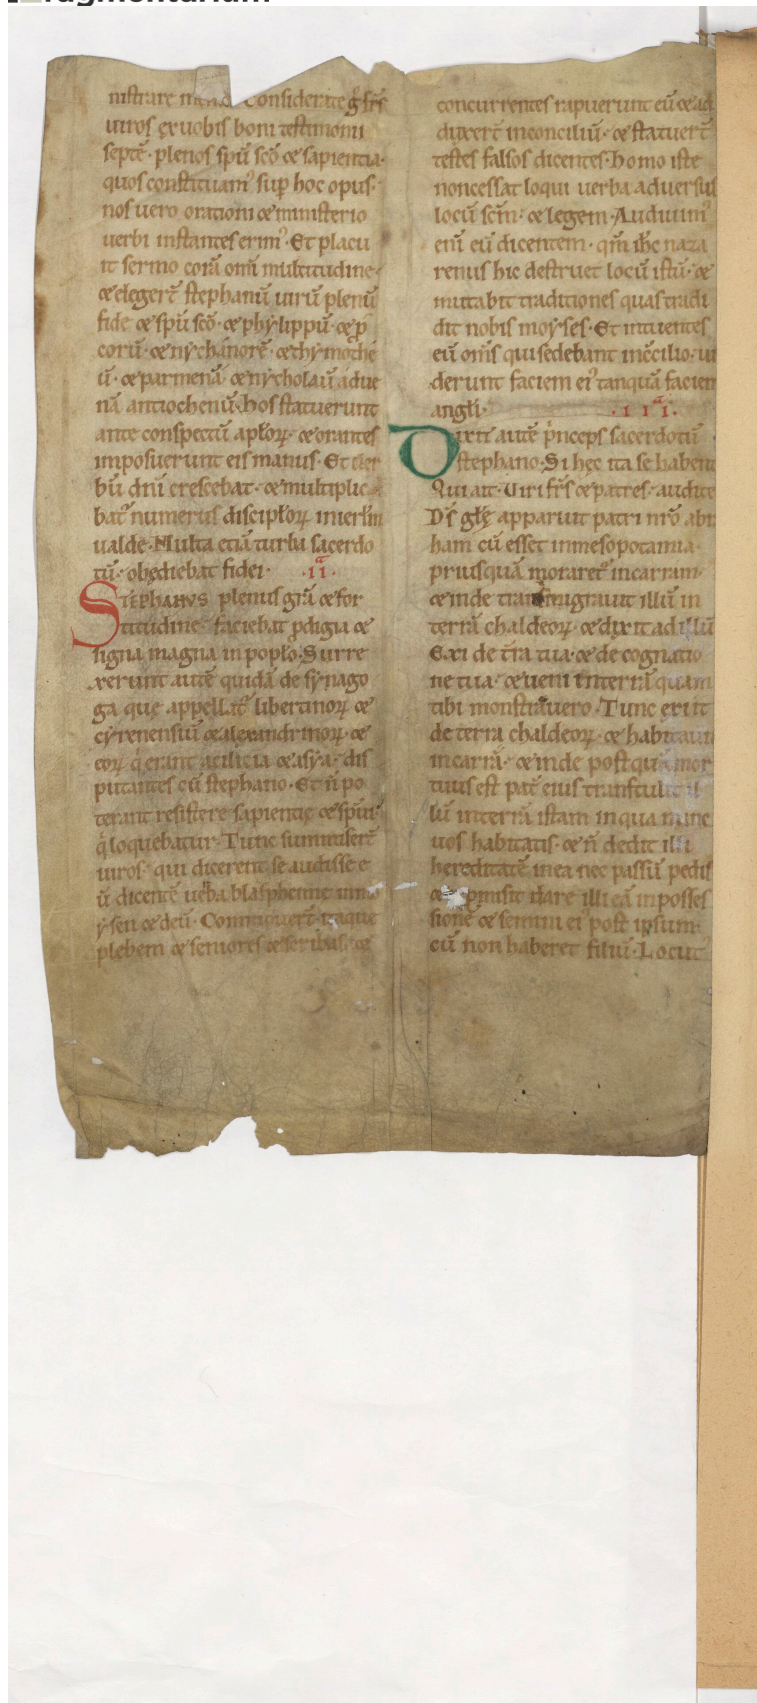 nistrare mensis. Considerate g̊ fr̄s
uiros ex uobis boni testimonii
septē· plenos spū scō & sapientia·
quos constituam᷒ sup̄ hoc opus·
nos uero orationi & ministerio
uerbi instantes erim᷒· Et placu
it sermo corā om̄i multitudine·
& elegert̄ stephanū uirū plenū
fide & spū scō· & phylippū· & p̄
corū· & nychanorē· & thymothe
ū· & parmenā· & nycholaū adue
nā antiochenū· hos statuerunt
ante conspectū apl̄oꝝ· & orantes
imposuerunt eis manus· Et uer
bū dn̄i crescebat· & multiplic
bat᷒ numerus discipl̄oꝝ in ierl̄m
ualde· Multa etiā turba sacerdo
tū· obędiebat fidei· ·II·ᵃ
STEPHANVS plenus gr̄a & for
titudine faciebat ꝓdigia &
signa magna in popl̄o· Surre
xerunt autē quidā de synago
ga quę appellat᷒ libertinoꝝ &
cyrenensiū & alexandrinoꝝ· &
eoꝝ q̇ erant a cilicia & asya· dis
putantes cū stephano· Et n̄ po
terant resistere sapientię & spūi·
q̇ loquebatur· Tunc summiserт̄
uiros· qui dicerent se audisse e
ū dicentē uerba blasphemie in mo
ysen & deū· Commouert̄ itaque
plebem & seniores & scribas· &
concurrentes rapuerunt eū & ad
duxert̄ in conciliū· & statuert̄
testes falsos dicentes· Homo iste
non cessat loqui uerba aduersus
locū scm̄· & legem· Audiuim᷒
enī eū dicentem· qm̄ ihc naza
renus hic destruet locū istū· &
mutabit traditiones quas tradi
dit nobis moyses· Et intuentes
eū om̄s qui sedebant in c̄cilio· ui
derunt faciem ei᷒ tanquā faciem
angl̄i· ·III·ᵃ
Dixit autē ṗnceps sacerdotū
stephano· Si hęc ita se habent
Qui ait· Uiri fr̄s & patres· audite
Ds̄ glę̄ apparuit patri nr̄o abra
ham cū esset in mesopotamia·
priusquā moraret᷒ in carram·
& inde transmigrauit illū in
terrā chaldeoꝝ· & dixit ad illū
Exi de tr̄a tua· & de cognatio
ne tua· & ueni in terrā quam
tibi monstrauero· Tunc exiit
de terra chaldeoꝝ· & habitauit
in carrā· & inde postquā mor
tuus est pat̄ eius transtulit il
lū in terrā istam in qua nunc
uos habitatis· & n̄ dedit illi
hereditatē in ea nec passū pedis
& ꝓmisit dare illi eā in posses
sionē & semini ei᷒ post ipsum·
cū non haberet filiū· Locut᷒